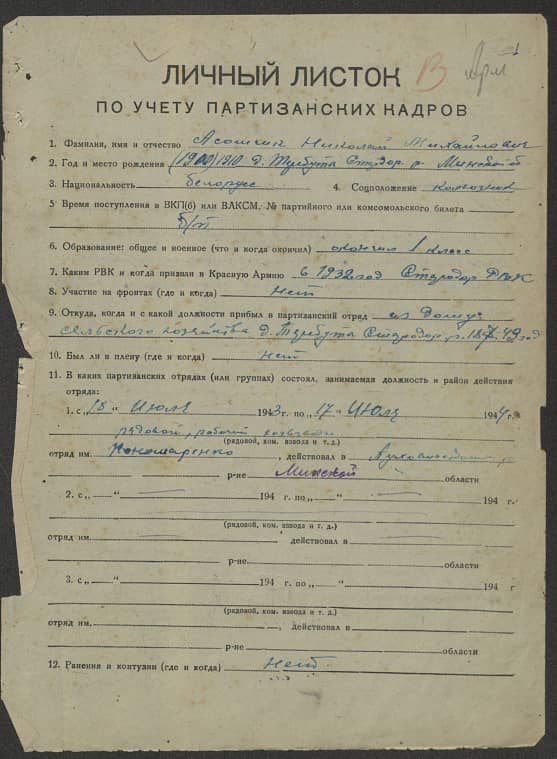 В
ЛИЧНЫЙ ЛИСТОК
ПО УЧЕТУ ПАРТИЗАНСКИХ КАДРОВ
1. Фамилия, имя и отчество Николай Михайлович
2. Год и место рождения (1900) 1910 д. Стародор. р. Минской об
3. Национальность белорус 4. Соцположение колхозник
5 Время поступления в ВКП(б) или ВЛКСМ, № партийного или комсомольского билета
б/п
6. Образование: общее и военное (что и когда окончил) окончил 1 класс
7. Каким РВК и когда призван в Красную Армию в 1932 год Стародор РВК
8. Участие на фронтах (где и когда) нет
9. Откуда, как и с какой должности прибыл в партизанский отряд из дому
сельского хозяйства д. Стародор. р. 43 год
10. Был ли в плену (где и когда) нет
11. В каких партизанских отрядах (или группах) состоял, занимаемая должность и район действия
отряда:
1. с „15“ Июля 1943 г. по „17“ Июля 1944 г.
рядовой, рабочий
(рядовой, ком. взвода и т. д.)
отряд им. Пономаренко, действовал в
р-не Минской области
2. с „—“ 194 г. по „—“ 194 г.
(рядовой, ком. взвода и т. д.)
отряд им. действовал в
р-не области
3. с „—“ 194 г. по „—“ 194 г
(рядовой, ком. взвода и т. д.)
отряд им. , действовал в
р-не области
12. Ранения и контузии (где и когда) нет